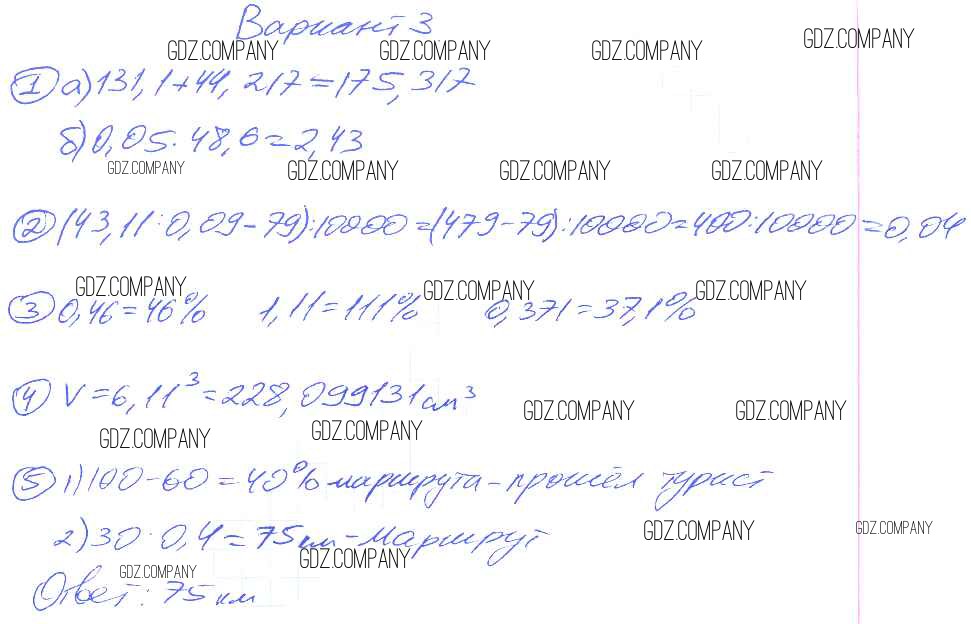 Вариант 3
GDZ.COMPANY GDZ.COMPANY GDZ.COMPANY GDZ.COMPANY
① а) 131,1+44,217=175,317
б) 0,05·48,6=2,43
GDZ.COMPANY GDZ.COMPANY GDZ.COMPANY GDZ.COMPANY
② (43,11:0,09-79):10000=(479-79):10000=400:10000=0,04
GDZ.COMPANY GDZ.COMPANY GDZ.COMPANY
③ 0,46=46% 1,11=111% 0,371=37,1%
④ V=6,11³=228,099131см³
GDZ.COMPANY GDZ.COMPANY
GDZ.COMPANY GDZ.COMPANY
⑤ 1) 100-60=40% маршрута - прошёл турист
2) 30:0,4=75км - Маршрут
GDZ.COMPANY GDZ.COMPANY
GDZ.COMPANY GDZ.COMPANY
Ответ: 75км